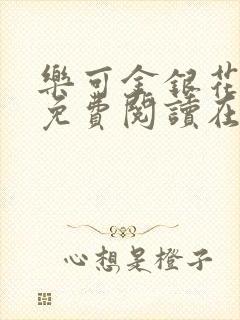 樂可金銀花
免費閱讀在
心想是橙子